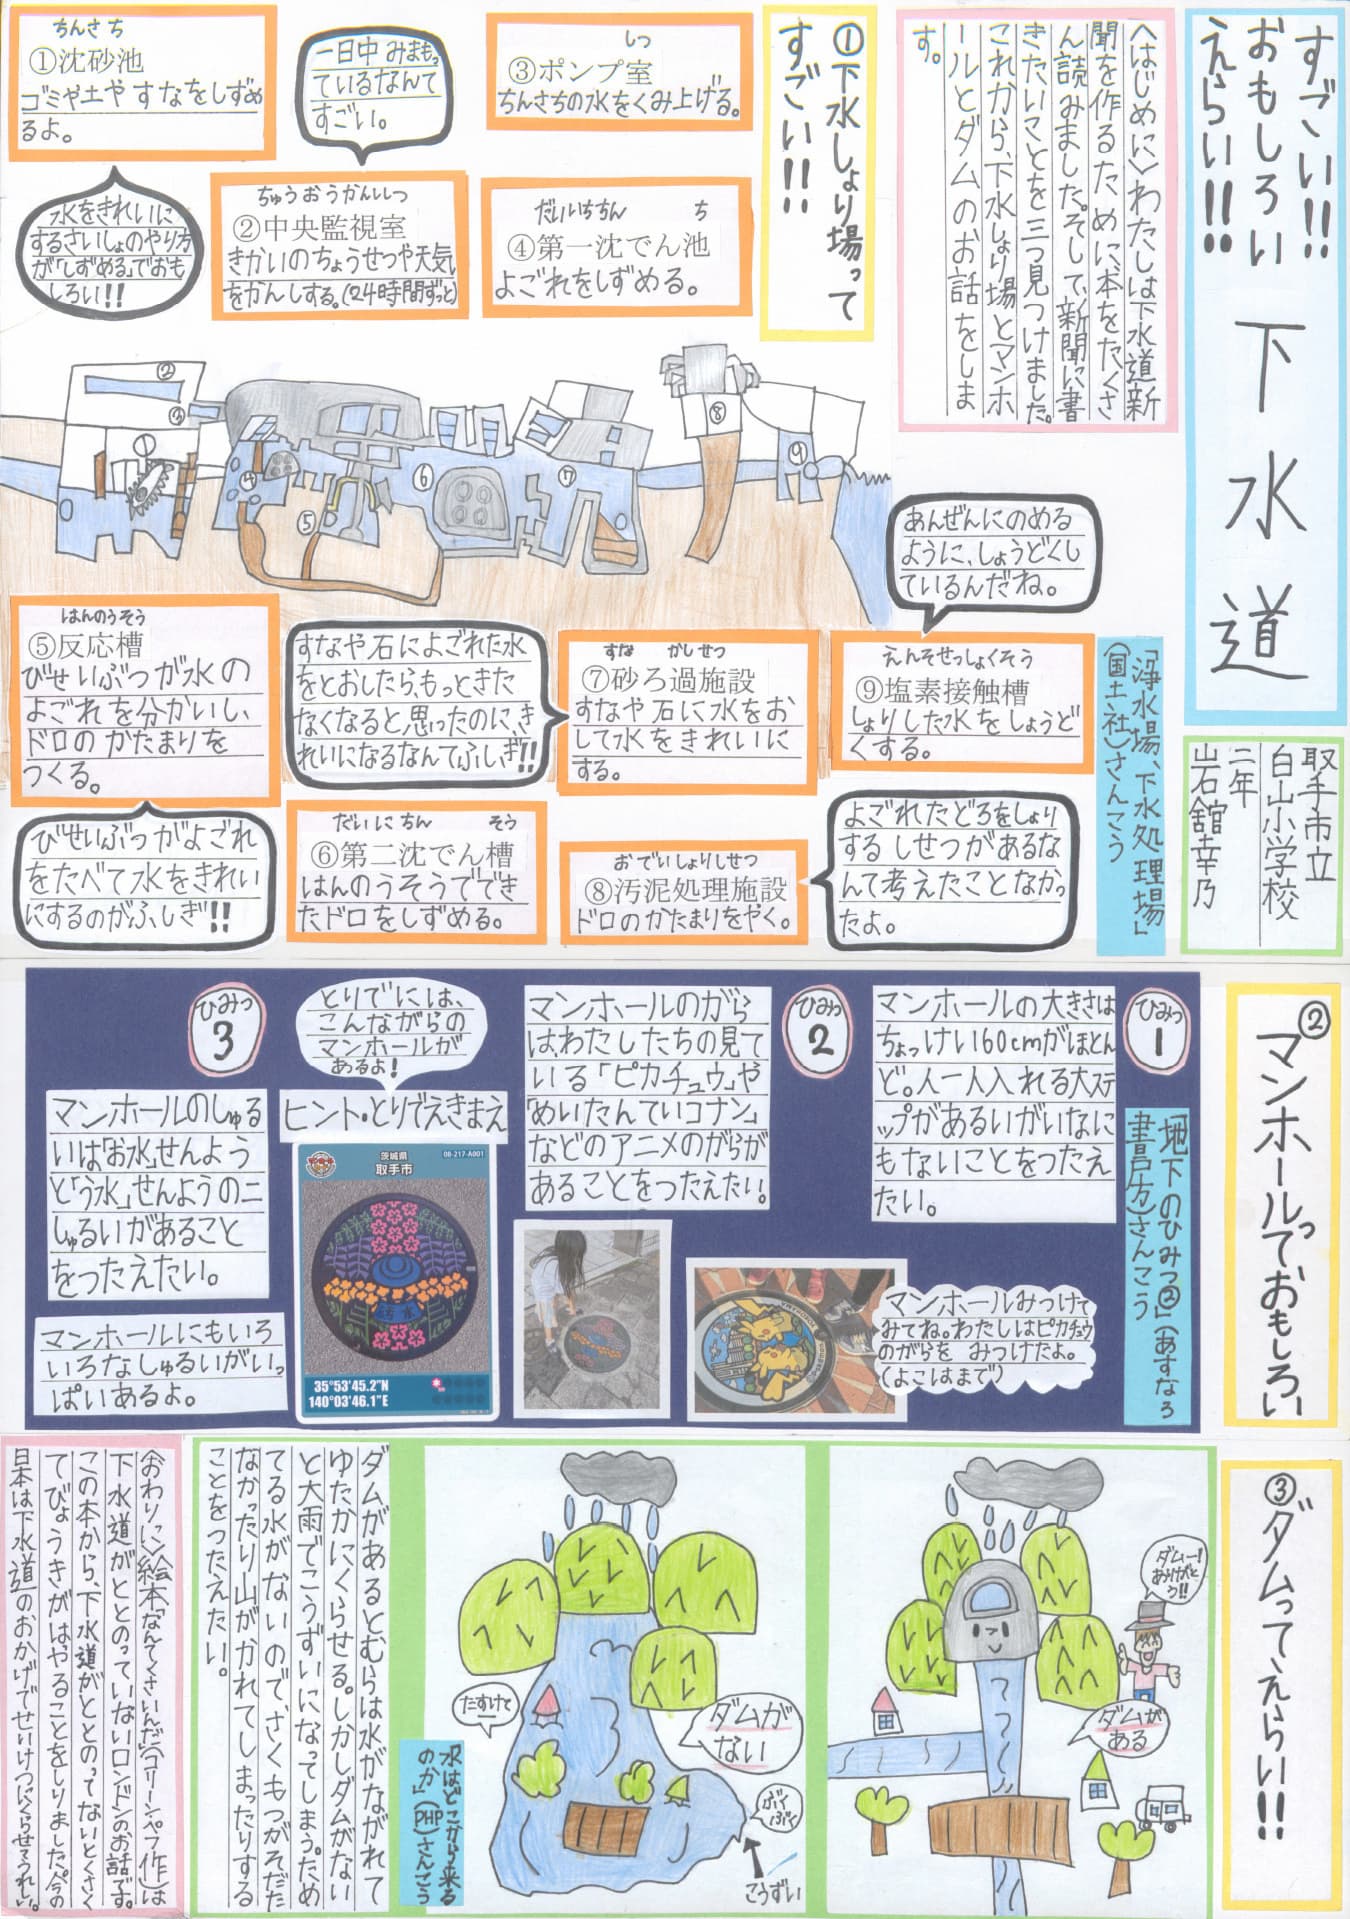 すごい!!
おもしろい
えらい!!
下水道
取手市立
白山小学校
二年
岩舘幸乃
〈はじめに〉わたしは下水道新
聞を作るために本をたくさ
ん読みました。そして、新聞に書
きたいことを三つ見つけました。
これから、下水しょり場とマンホ
ールとダムのお話をしま
す。
①下水しょり場って
すごい!!
ちんさち
①沈砂池
ゴミや土や すなをしずめ
るよ。
水をきれいに
するさいしょのやり方
が「しずめる」でおも
しろい!!
一日中 みまもっ
ているなんて
すごい。
ちゅうおうかんしつ
②中央監視室
きかいのちょうせつや天気
をかんしする。(24時間ずっと)
しつ
③ポンプ室
ちんさちの水をくみ上げる。
だいいちちん ち
④第一沈でん池
よごれをしずめる。
②
③
①
④
⑤
⑥
⑦
⑧
⑨
はんのうそう
⑤反応槽
びせいぶつが水の
よごれを分かいし、
ドロの かたまりを
つくる。
びせいぶつがよごれ
をたべて水をきれい
にするのがふしぎ!!
すなや石によごれた水
をとおしたら、もっときた
なくなると思ったのに、き
れいになるなんてふしぎ!!
だいにちん そう
⑥第二沈でん槽
はんのうそうでで き
たドロをしずめる。
すな かしせつ
⑦砂ろ過施設
すなや 石に水をお
して水をきれいに
する。
おでいしょりしせつ
⑧汚泥処理施設
ドロのかたまりをやく。
よごれたどろをしょり
する しせつがあるな
んて考えたことなかっ
たよ。
あんぜんにのめる
ように、しょうどくし
ているんだね。
えんそせっしょくそう
⑨塩素接触槽
しょりした水をしょうど
くする。
「浄水場、下水処理場」
(国土社)さんこう
②マンホールっておもしろい
ひみつ
1
マンホールの大きさは
ちょっけい60cmがほとん
ど。人一人入れる大ステ
ップがあるいがいなに
もないことをつたえ
たい。
「地下のひみつ②」(あすなろ
書房)さんこう
ひみつ
2
マンホールのがら
は、わたしたちの見て
いる「ピカチュウ」や
「めいたんていコナン」
などのアニメのがらが
あることをつたえたい。
マンホールみつけて
みてね。わたしはピカチュウ
のがらを みつけたよ。
(よこはまで)
とりでには、
こんながらの
マンホールが
あるよ!
ヒント・とりでえきまえ
茨城県
取手市
08-217-A001
汚水
35°53'45.2"N
140°03'46.1"E
ひみつ
3
マンホールのしゅる
いは「お水」せんよう
と「う水」せんようの二
しゅるいがあること
をつたえたい。
マンホールにもいろ
いろなしゅるいがいっ
ぱいあるよ。
③ダムってえらい!!
ダムー!
ありがと
う!!
ダムが
ある
ダムが
ない
たすけて
ぶく
ぶく
こうずい
「水はどこから来る
のか」(PHP)さんこう
ダムがあるとむらは水がながれて
ゆたかにくらせる。しかしダムがない
と大雨でこうずいになってしまう。ため
てる水がないので、さくもつがそだた
なかったり山がかれてしまったりする
ことをつたえたい。
〈おわりに〉絵本「なんてくさいんだ」(コリーン・ペフ作)は
下水道がととのっていないロンドンのお話です。
この本から、下水道がととのってないとくさく
てびょうきがはやることをしりました。今の
日本は下水道のおかげでせいけつにくらせてうれしい。